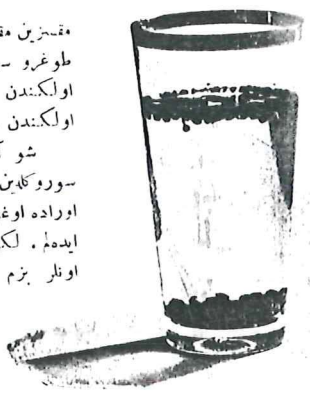 مقنزین مق
طوغرو س
اولكندن
اولكندن
شو ک
سوروکلین
اوراده اوغ
ایدهلم . لک
اونلر بزم